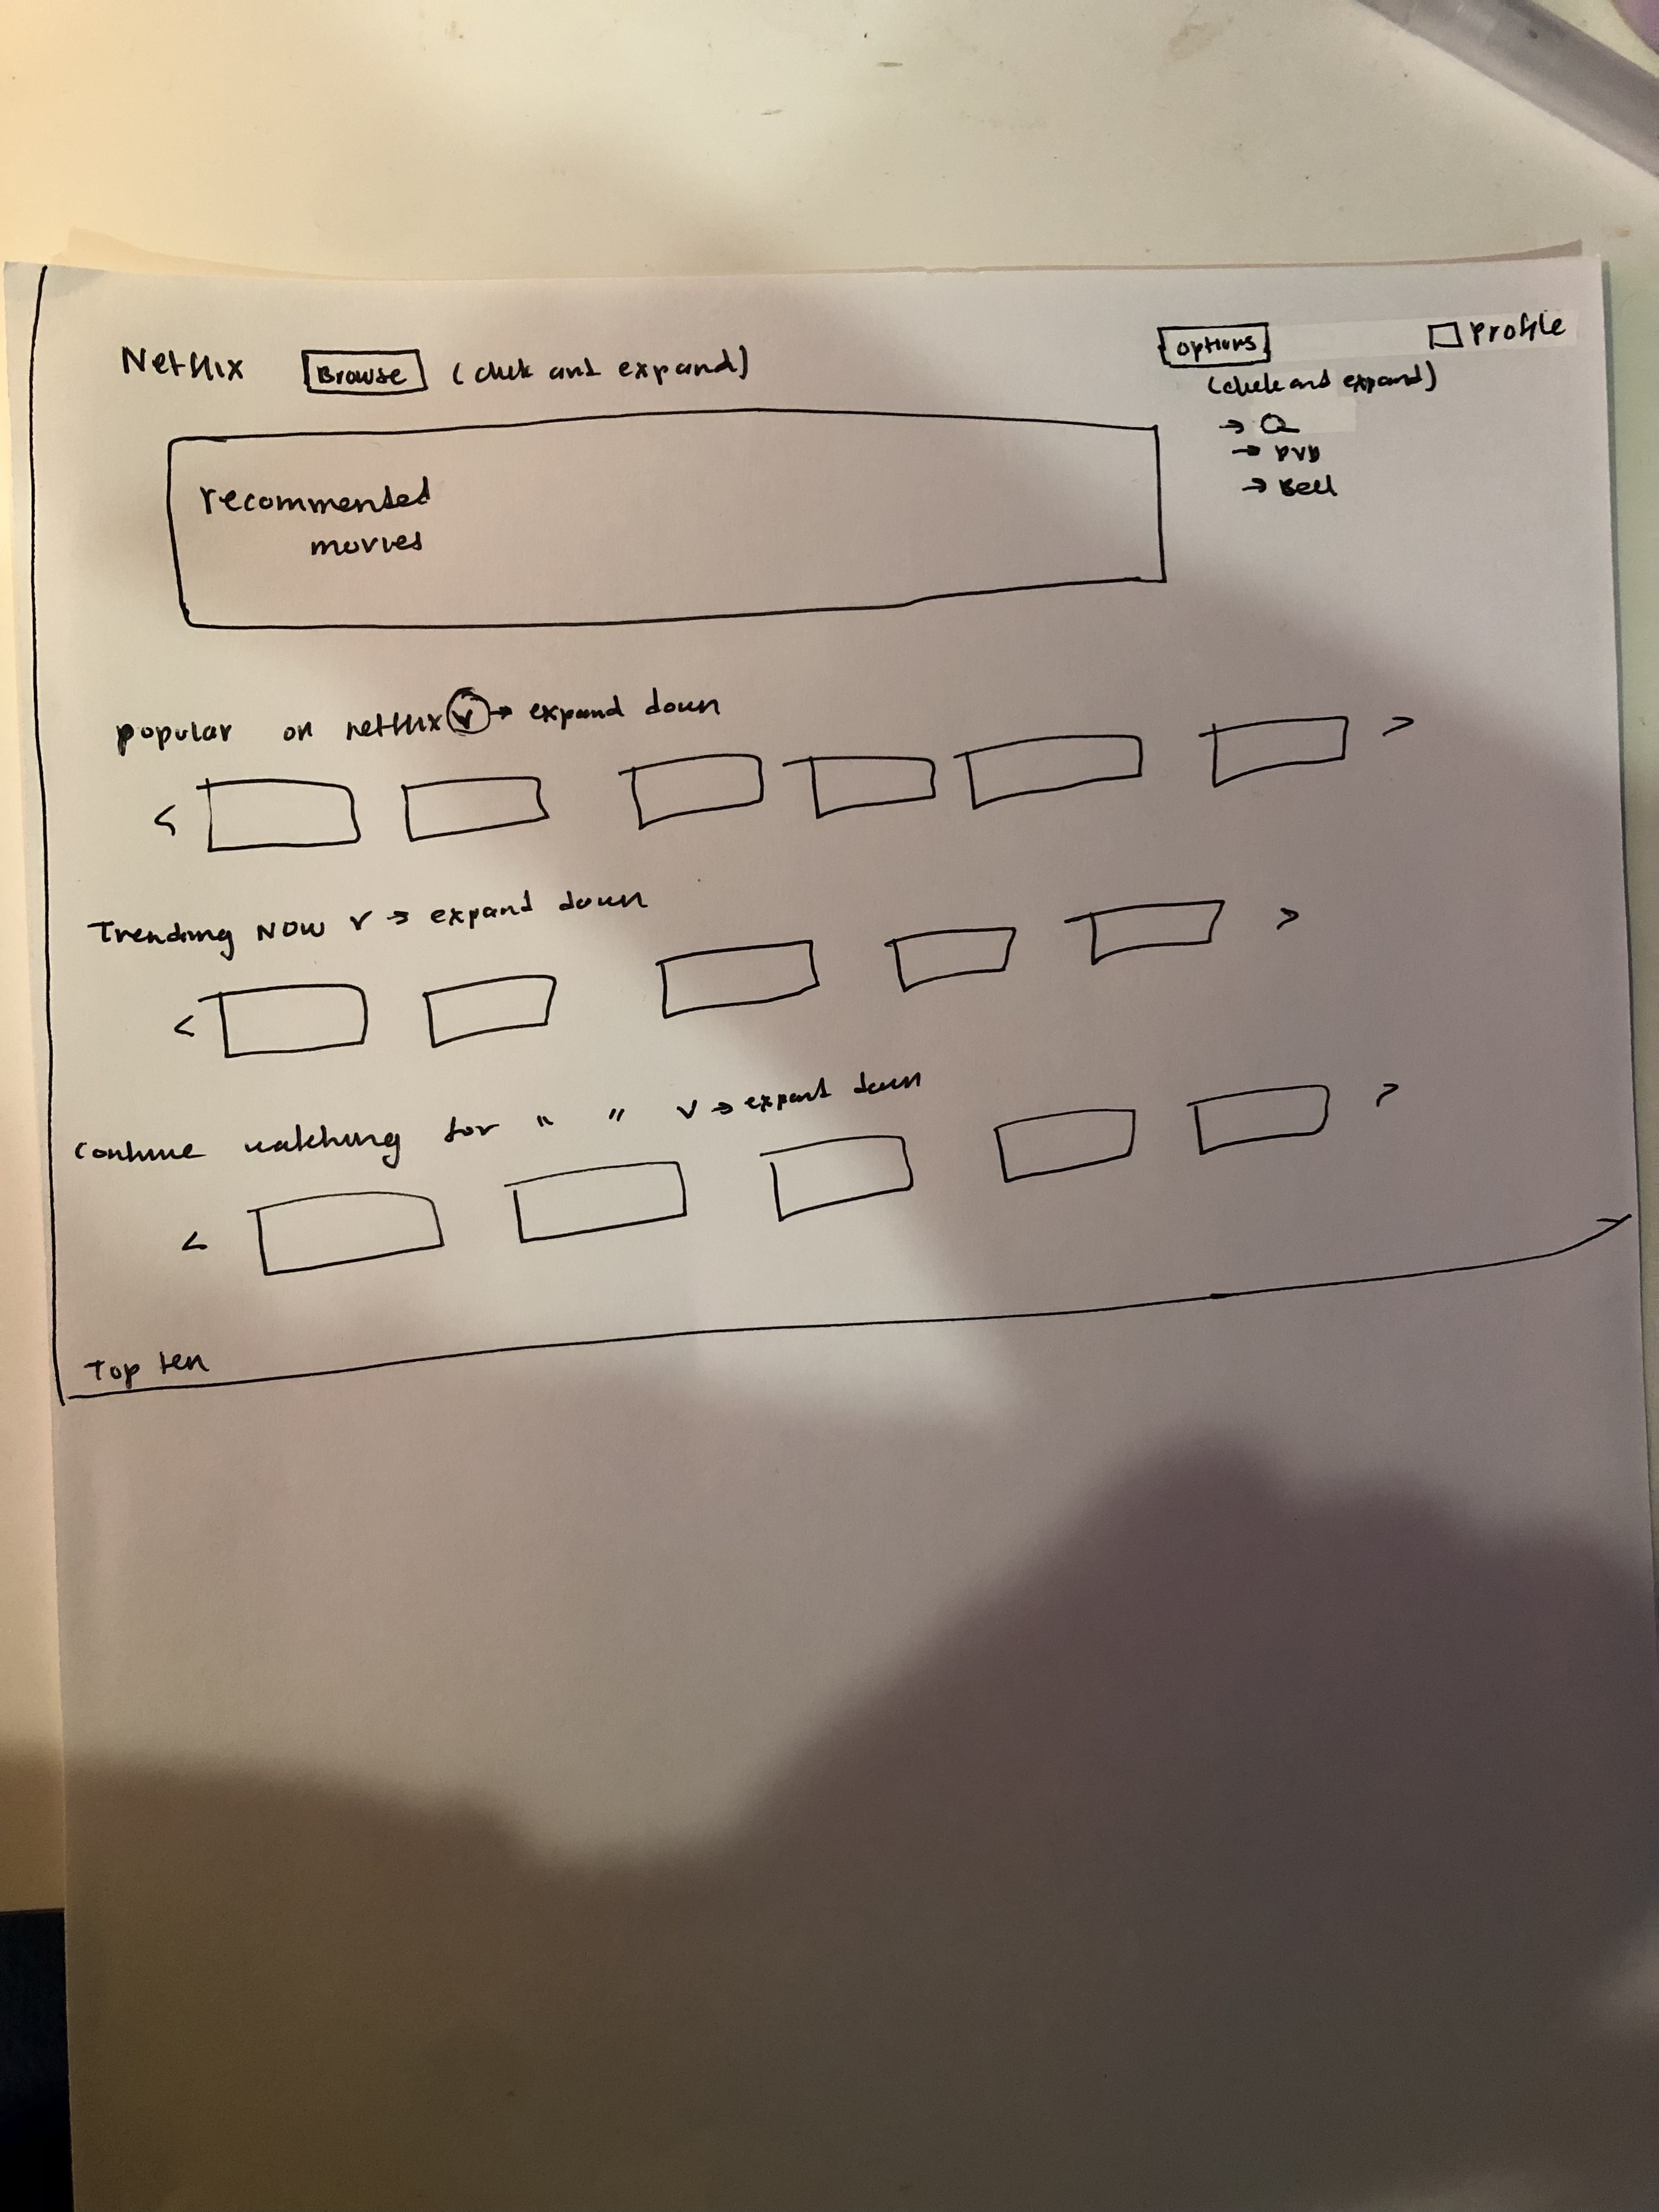 Netflix Browse (click and expand) options Profile
(click and expand)
→ Q
→ DVD
→ Bell
recommended
movies
popular on netflix v → expand down
< >
Trending NOW v → expand down
< >
Continue watching for " " v → expand down
< >
Top ten